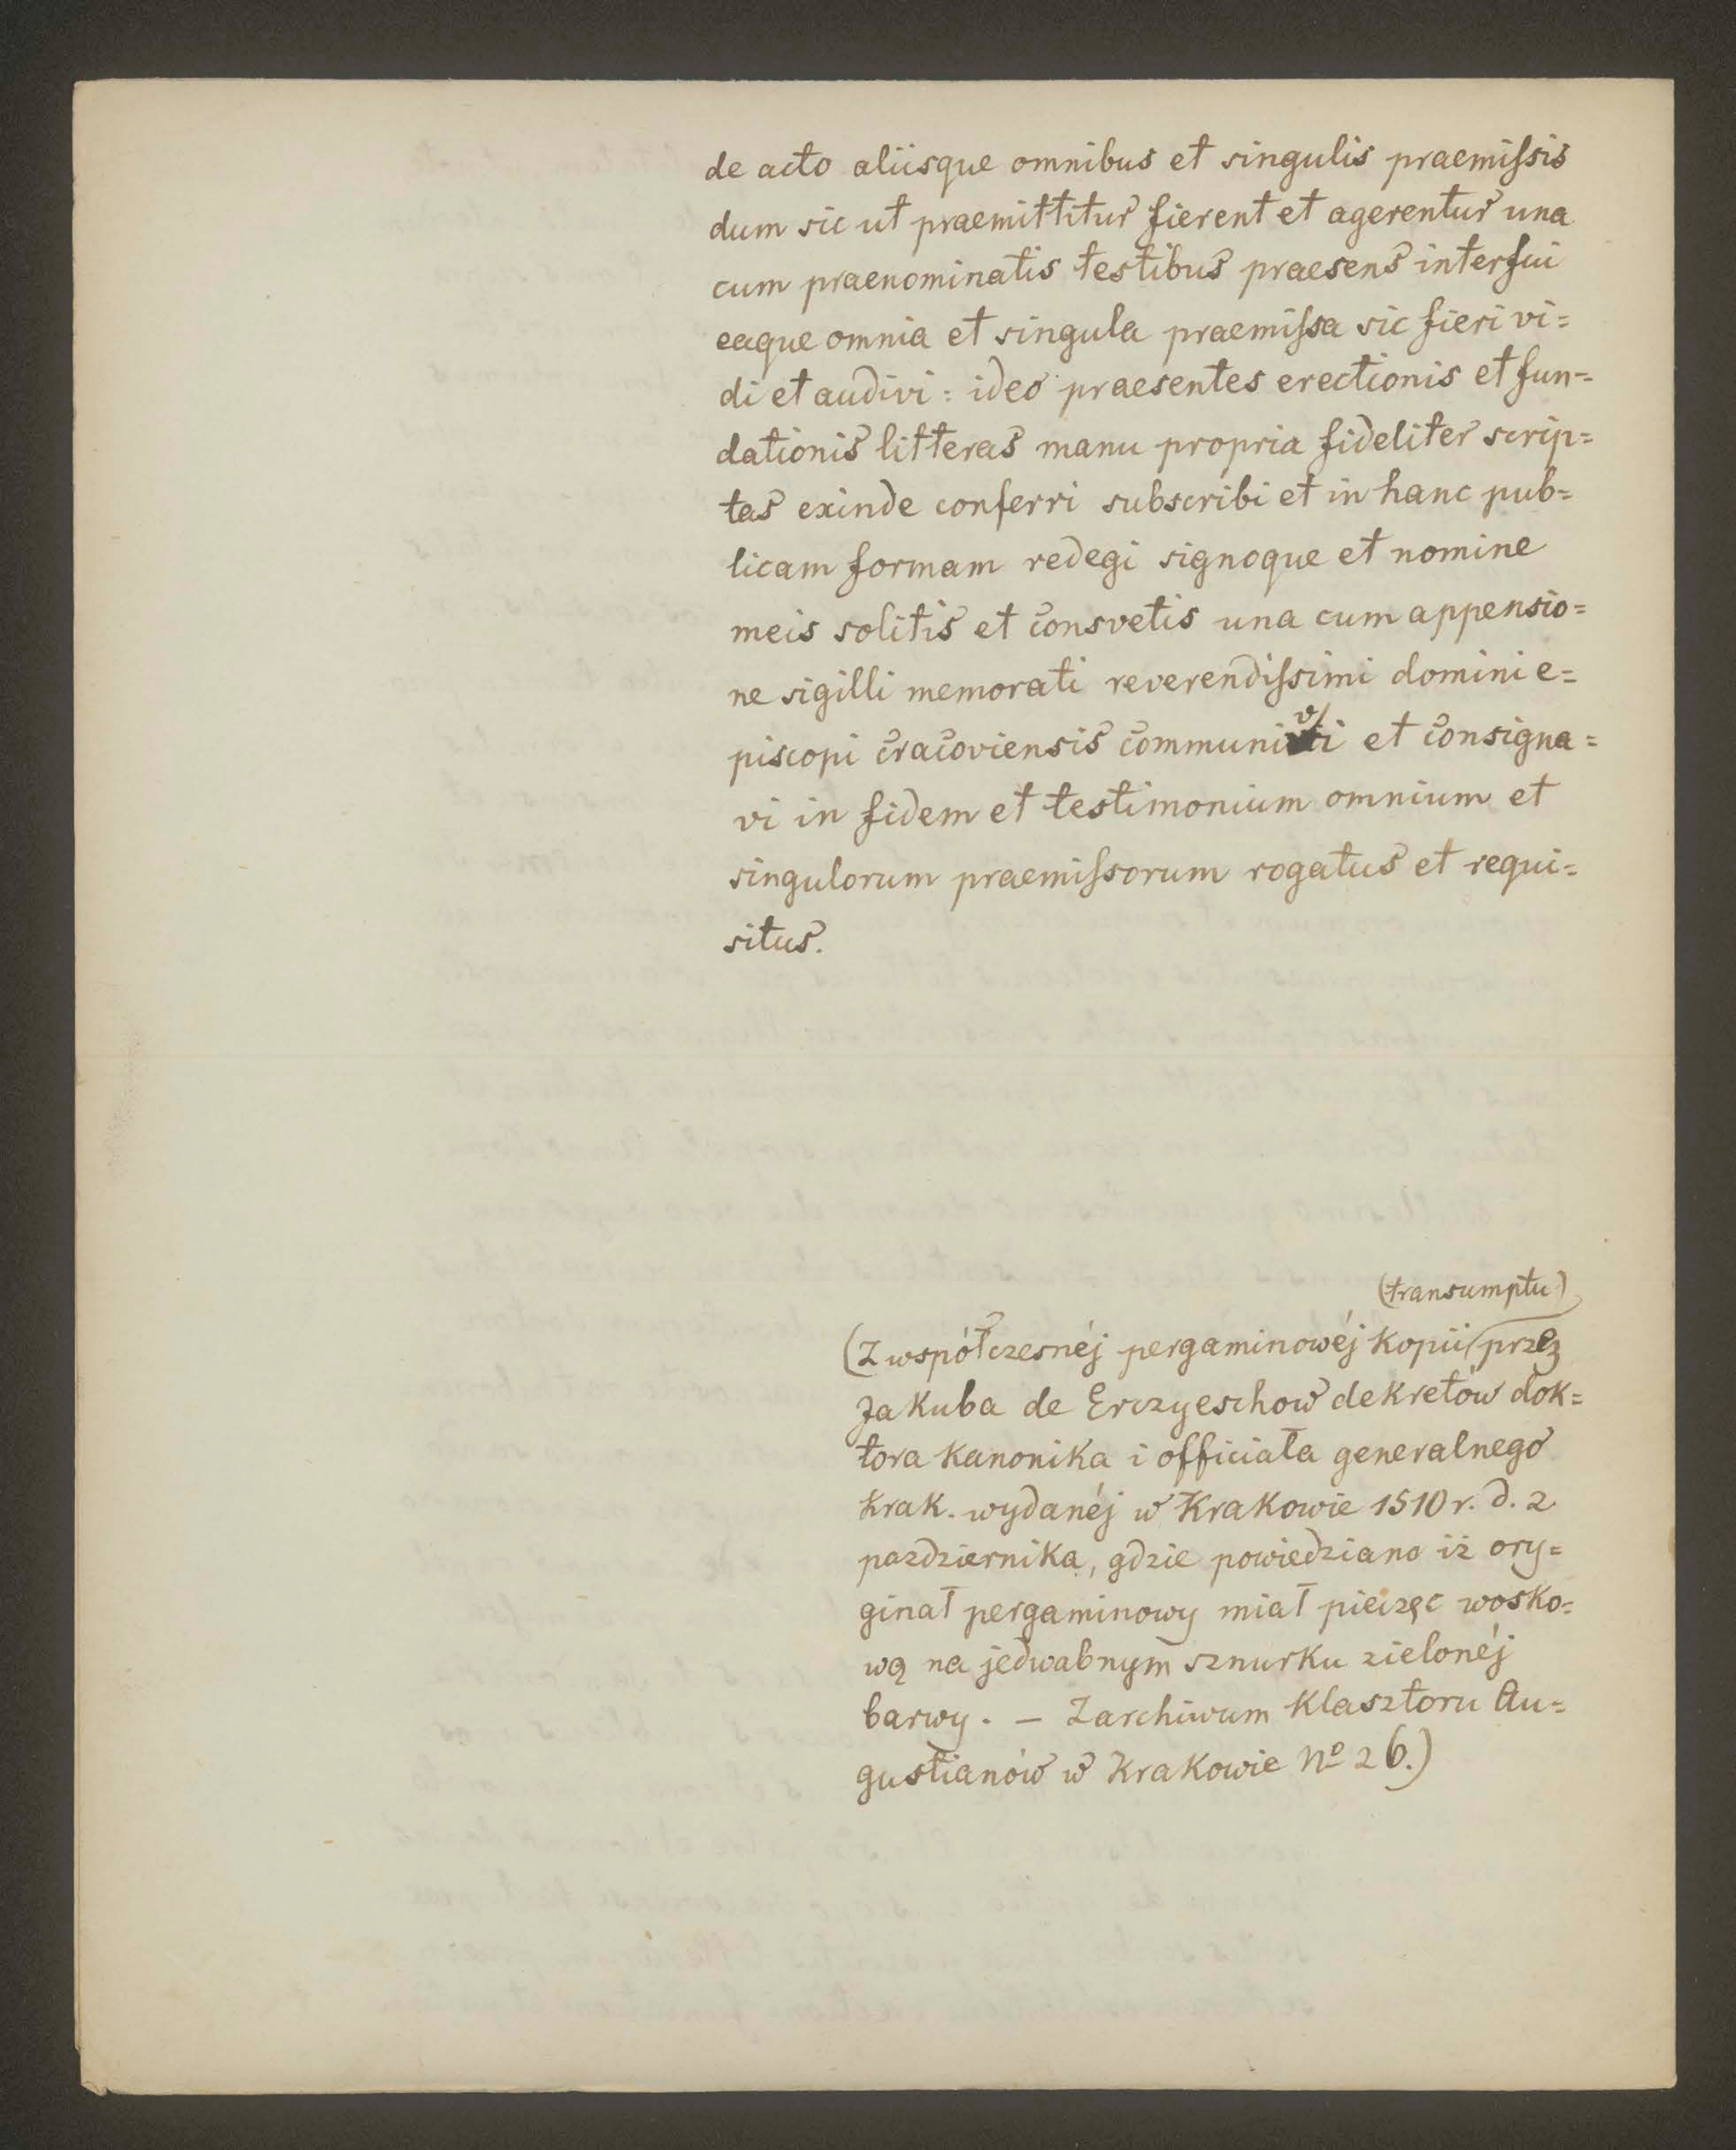 de acto aliisque omnibus et singulis praemiſsis
dum sic ut praemittitur fierent et agerentur una
cum praenominatis testibus praesens interfui
eaque omnia et singula praemiſsa sic fieri vi=
di et audivi: ideo praesentes erectionis et fun=
dationis litteras manu propria fideliter scrip=
tas exinde conferri subscribi et in hanc pub=
licam formam redegi signoque et nomine
meis solitis et consvetis una cum appensio=
ne sigilli memorati reverendiſsimi domini e=
piscopi cracoviensis communivi et consigna=
vi in fidem et testimonium omnium et
singulorum praemiſsorum rogatus et requi=
situs.
(transumptu)
(Z współczesnéj pergaminowéj kopii przez
Jakuba de Erczyeschow dekretów dok=
tora kanonika i officiała generalnego
krak. wydanéj w Krakowie 1510 r. d. 2
pazdziernika, gdzie powiedziano iż ory=
ginał pergaminowy miał pieczęc wosko=
wą na jedwabnym sznurku zielonéj
barwy. — Z archiwum klasztoru Au=
gustianów w Krakowie No 26.)